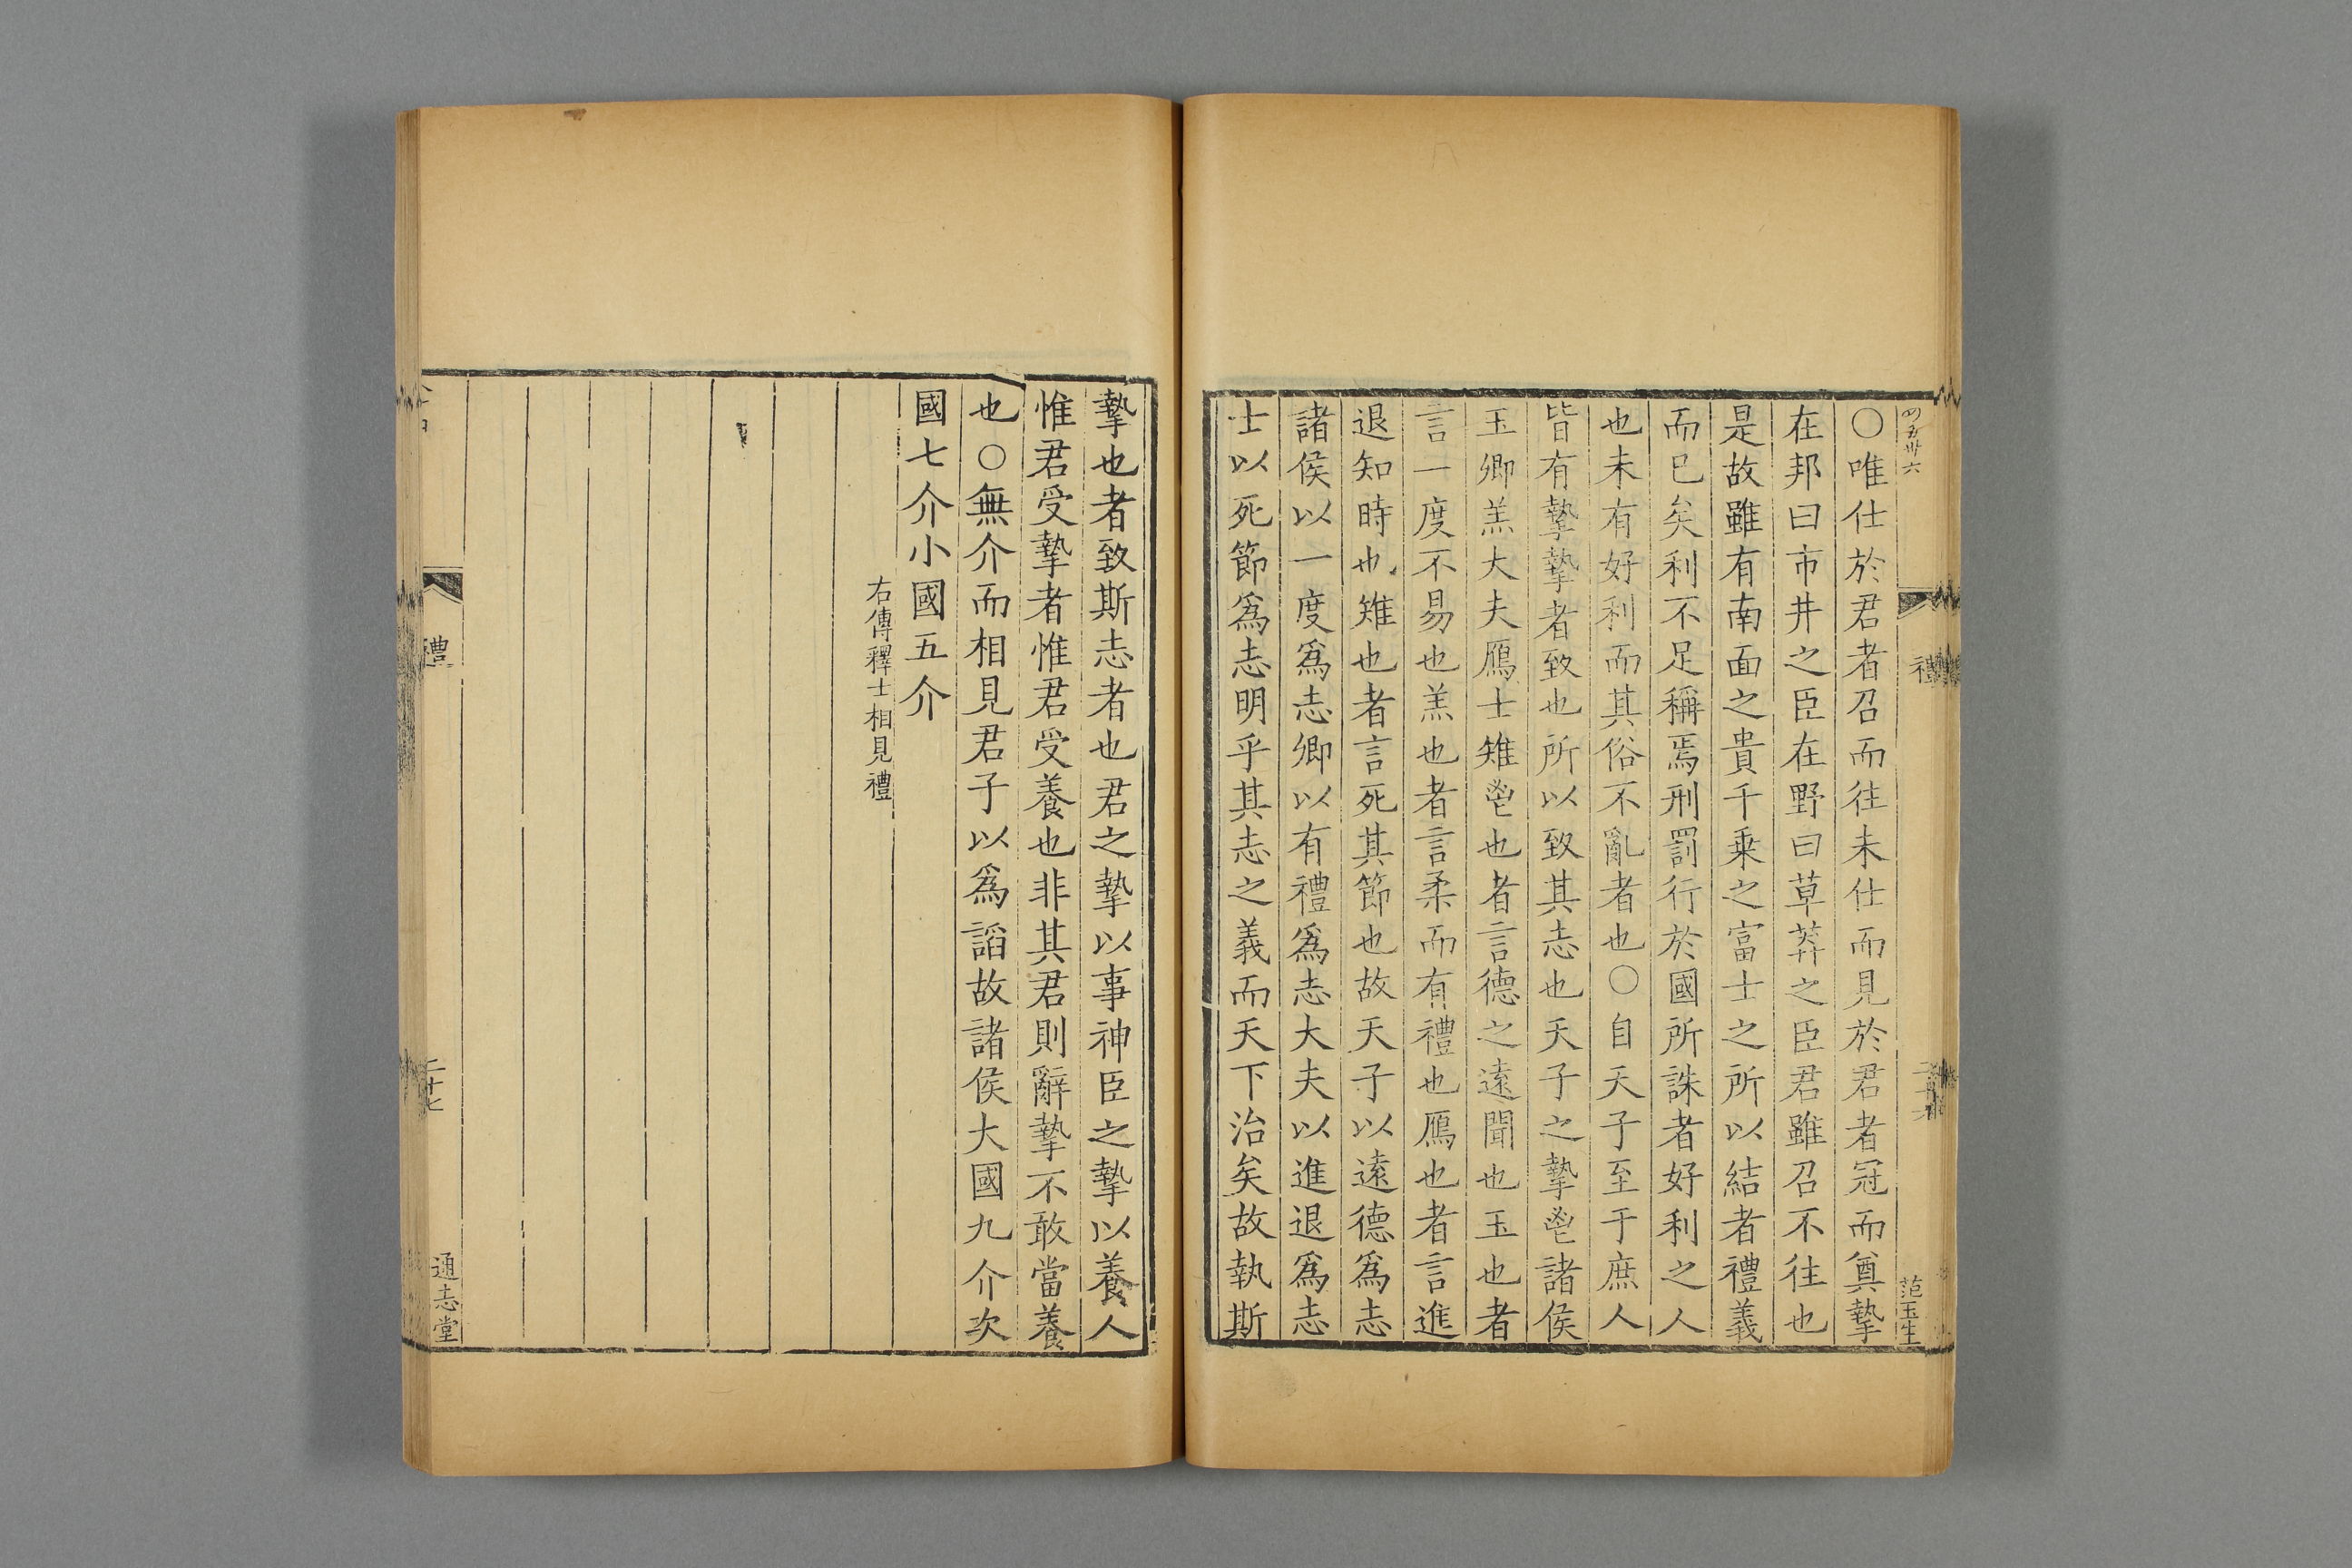 〇唯仕於君者召而往未仕而見於君者冠而奠摯
在邦曰市井之臣在野曰草莽之臣君雖召不往也
是故雖有南面之貴千乗之富士之所以結者禮義
而已矣利不足稱焉刑罰行於國所誅者好利之人
也未有好利而其俗不亂者也〇自天子至于庶人
皆有摯摯者致也所以致其志也天子之摯鬯諸侯
玉卿羔大夫鴈士雉鬯也者言德之逺聞也玉也者
言一度不易也羔也者言柔而有禮也鴈也者言進
退知時也雉也者言死其節也故天子以逺德爲志
諸侯以一度爲志卿以有禮爲志大夫以進退爲志
士以死節爲志明乎其志之義而天下治矣故執斯
范玉生
摯也者致斯志者也君之摯以事神臣之摯以養人
惟君受摯者惟君受養也非其君則辭摯不敢當養
也〇無介而相見君子以爲謟故諸侯大國九介次
國七介小國五介
右傳釋士相見禮
禮
二十七
通志堂